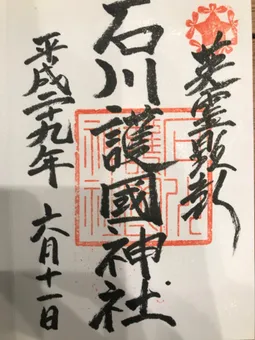 英霊顕彰
石川護國神社
平成二十九年
六月十一日